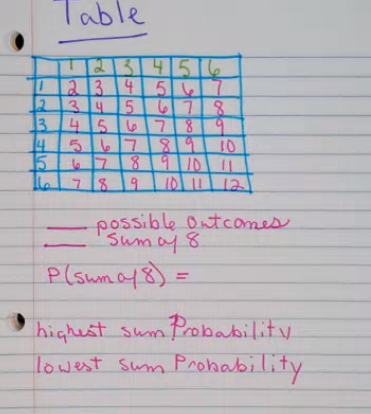 Table
1 2 3 4 5 6
1 2 3 4 5 6 7
2 3 4 5 6 7 8
3 4 5 6 7 8 9
4 5 6 7 8 9 10
5 6 7 8 9 10 11
6 7 8 9 10 11 12
___ possible outcomes
___ sum of 8
P(sum of 8) =
highest sum Probability
lowest sum Probability